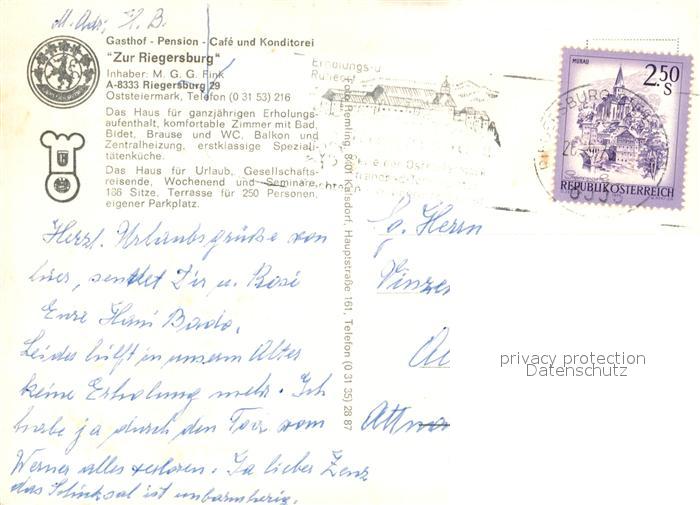 M. Adr. H. B.
Gasthof - Pension - Café und Konditorei
"Zur Riegersburg"
Inhaber: M. G. G. Fink
A-8333 Riegersburg 29
Oststeiermark, Telefon (0 31 53) 216
Das Haus für ganzjährigen Erholungs-
aufenthalt, komfortable Zimmer mit Bad,
Bidet, Brause und WC, Balkon und
Zentralheizung, erstklassige Speziali-
tätenküche.
Das Haus für Urlaub, Gesellschafts-
reisende, Wochenend und Seminare,
186 Sitze, Terrasse für 250 Personen,
eigener Parkplatz.
Herzl. Urlaubsgrüße von
hier, sendet Dir u. Rosi
Eure Hani Bado.
Leider hilft in unserm Alter
keine Erholung mehr. Ich
habe ja durch den Tod vom
Werner alles verloren. Ja lieber Zenz
das Schicksal ist unbarmherzig.
Foto Remling, 8401 Kalsdorf, Hauptstraße 161, Telefon (0 31 35) 28 87
Erholungs-u
MURAU
2.50
S
REPUBLIK ÖSTERREICH
Sg. Herrn
Vinzen
Attna
privacy protection
Datenschutz